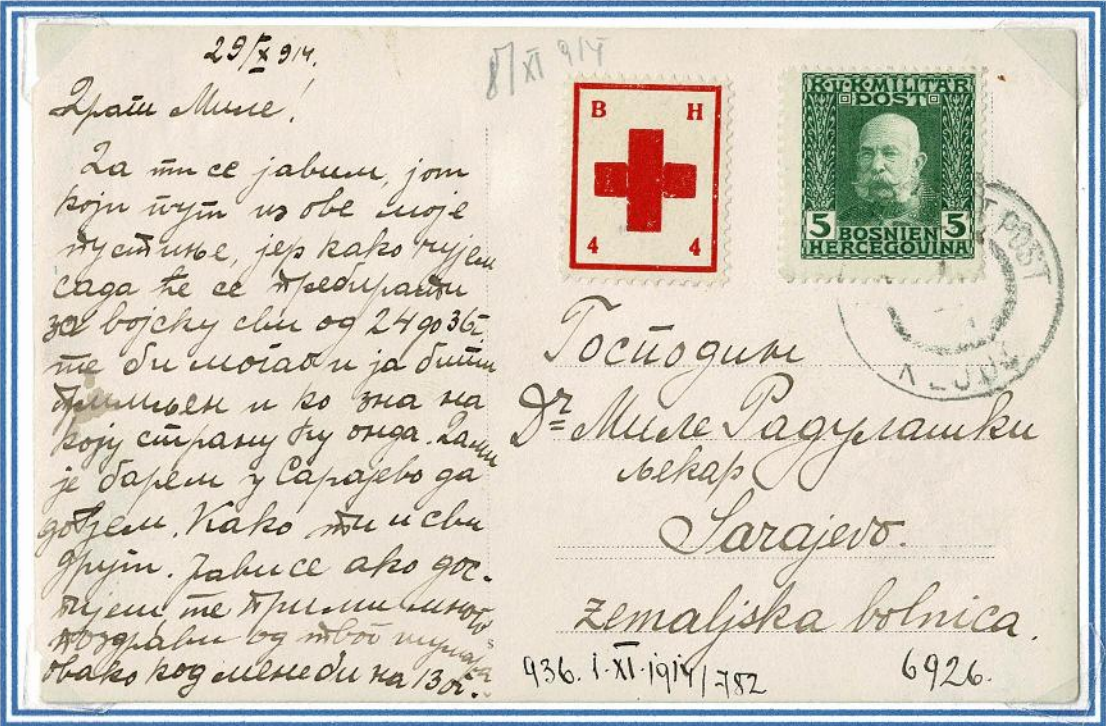 29/X 914.
8/XI 914
Драги Миле!
Да ти се јавим, још
који пут из ове моје
пустиње, јер како чујем
сада ће се требирати
за војску сви од 24 до 36г.
те би могао и ја бити
примљен и ко зна на
коју страну ћу онда. Да ми
је барем у Сарајево да
дођем. Како ти и сви
други. Јави се ако дос-
пијеш те прими много
поздрава од твог
овако код мене би на 13 ог.
В Н
4 4
K.U.K. MILITÄR
POST
5 5
BOSNIEN
HERCEGOVINA
POST
KLJUČ
Господин
Dr Миле Радулашки
љекар
Sarajevo.
Zemaljska bolnica.
936. 1-XI-1914/782
6926.